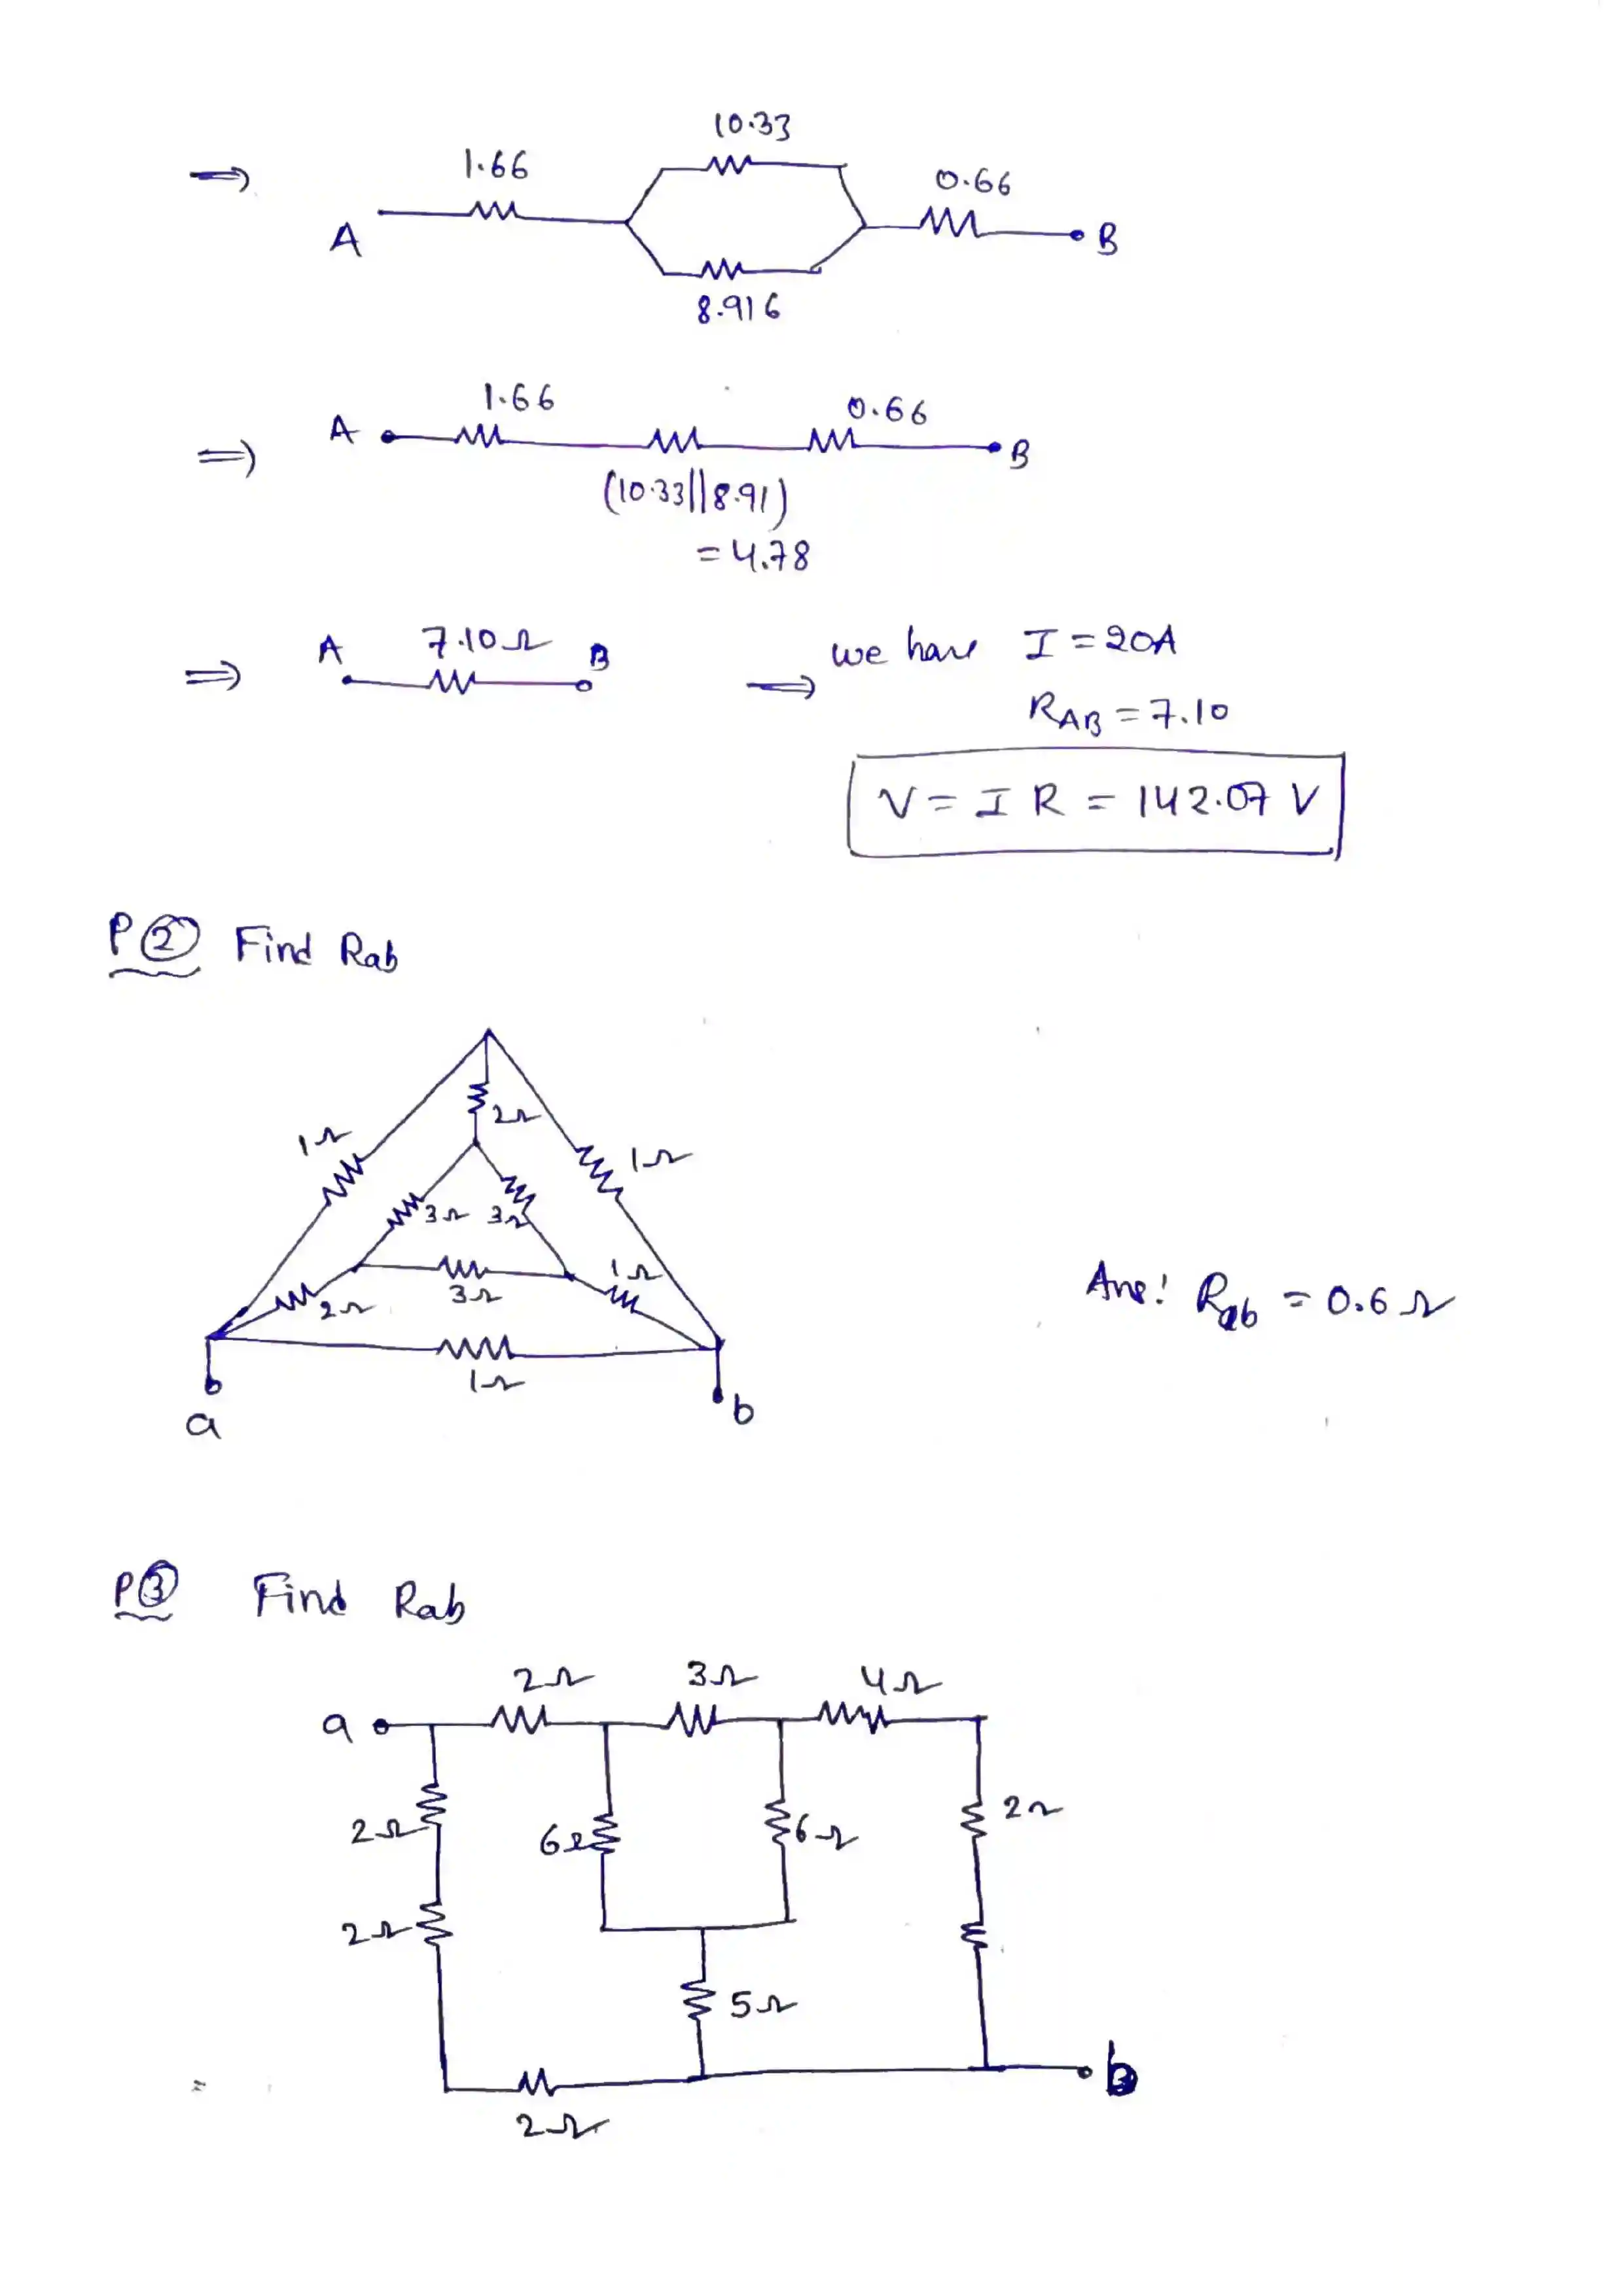 ⇒ 1.66 10.33 0.66
A B
8.916
⇒ A 1.66 0.66 B
(10.33||8.91)
= 4.78
⇒ A 7.10Ω B ⇒ we have I = 20A
RAB = 7.10
V = I R = 142.07 V
P② Find Rab
2Ω
1Ω 1Ω
3Ω 3Ω
1Ω
2Ω 3Ω
Ans: Rab = 0.6 Ω
1Ω
a b
P③ Find Rab
2Ω 3Ω 4Ω
a
2Ω 6Ω 6Ω 2Ω
2Ω
5Ω
= b
2Ω